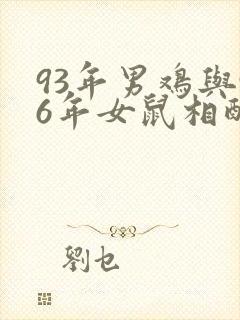 93年男鸡與
6年女鼠相
劉乜